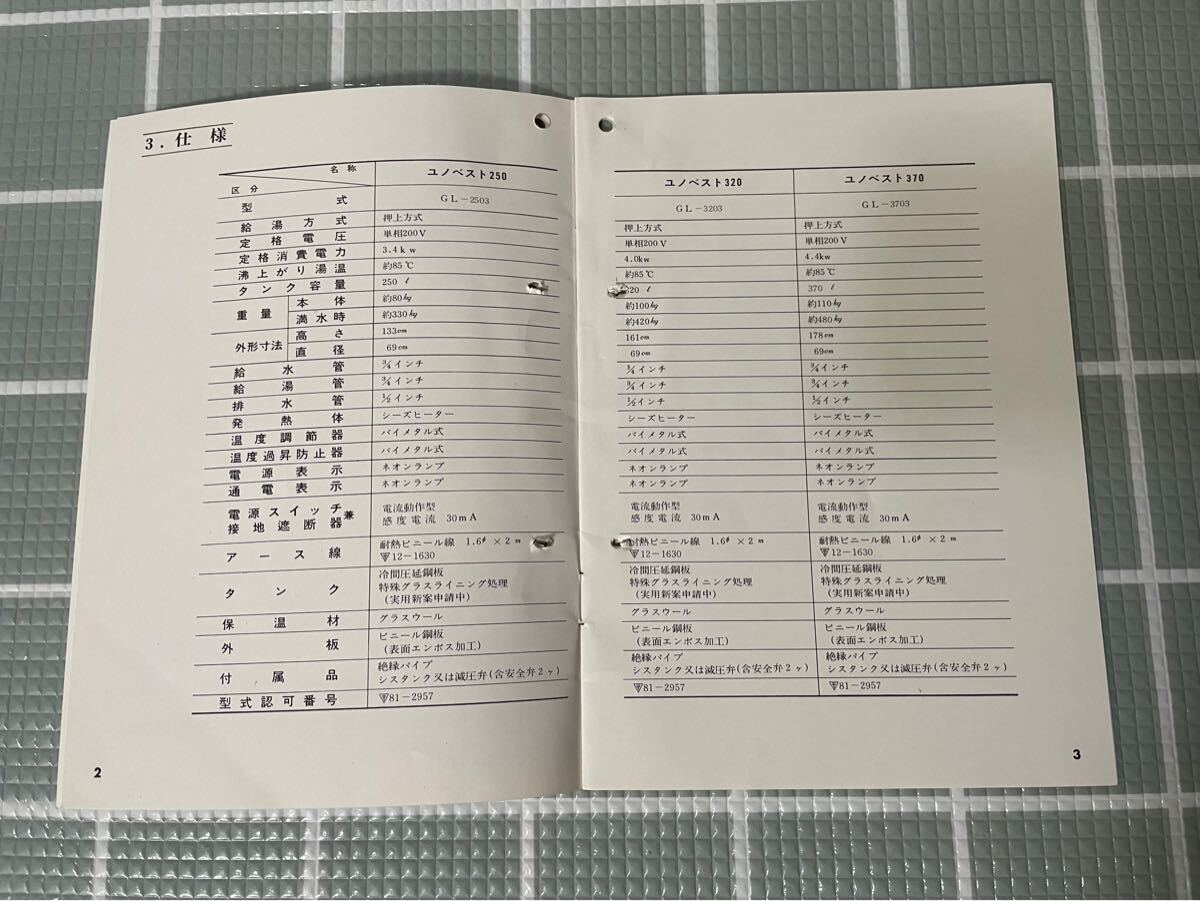 3.仕様
名称
区分
ユノベスト250
型式 GL-2503
給湯方式 押上方式
定格電圧 単相200V
定格消費電力 3.4kw
沸上がり湯温 約85℃
タンク容量 250ℓ
重量 本体 約80㎏
満水時 約330㎏
外形寸法 高さ 133cm
直径 69cm
給水管 3/4インチ
給湯管 3/4インチ
排水管 1/2インチ
発熱体 シーズヒーター
温度調節器 バイメタル式
温度過昇防止器 バイメタル式
電源表示 ネオンランプ
通電表示 ネオンランプ
電源スイッチ兼 電流動作型
接地遮断器 感度電流 30mA
アース線 耐熱ビニール線 1.6φ×2m
▽12-1630
冷間圧延鋼板
タンク 特殊グラスライニング処理
(実用新案申請中)
保温材 グラスウール
外板 ビニール鋼板
(表面エンボス加工)
付属品 絶縁パイプ
シスタンク又は減圧弁(含安全弁2ヶ)
型式認可番号 ▽81-2957
2
ユノベスト320 ユノベスト370
GL-3203 GL-3703
押上方式 押上方式
単相200V 単相200V
4.0kw 4.4kw
約85℃ 約85℃
320ℓ 370ℓ
約100㎏ 約110㎏
約420㎏ 約480㎏
161cm 178cm
69cm 69cm
3/4インチ 3/4インチ
3/4インチ 3/4インチ
1/2インチ 1/2インチ
シーズヒーター シーズヒーター
バイメタル式 バイメタル式
バイメタル式 バイメタル式
ネオンランプ ネオンランプ
ネオンランプ ネオンランプ
電流動作型 電流動作型
感度電流 30mA 感度電流 30mA
耐熱ビニール線 1.6φ×2m 耐熱ビニール線 1.6φ×2m
▽12-1630 ▽12-1630
冷間圧延鋼板 冷間圧延鋼板
特殊グラスライニング処理 特殊グラスライニング処理
(実用新案申請中) (実用新案申請中)
グラスウール グラスウール
ビニール鋼板 ビニール鋼板
(表面エンボス加工) (表面エンボス加工)
絶縁パイプ 絶縁パイプ
シスタンク又は減圧弁(含安全弁2ヶ) シスタンク又は減圧弁(含安全弁2ヶ)
▽81-2957 ▽81-2957
3